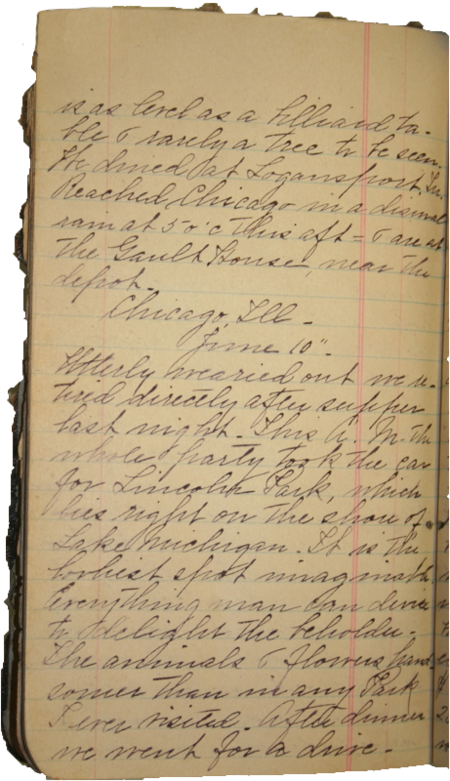 is as level as a billiard ta-
ble & rarely a tree to be seen.
We dined at Logansport, In.
Reached Chicago in a dismal
rain at 5 o'c this aft = & are at
the Gault House, near the
depot.
Chicago, Ill -
June 10"
Utterly wearied out we re-
tired directly after supper
last night - This A. M. the
whole party took the car
for Lincoln Park, which
lies right on the shore of
Lake Michigan. It is the
loveliest spot imaginable
Everything man can devise
to delight the beholder -
The animals & flowers hand-
somer than in any Park
I ever visited. After dinner
we went for a drive -